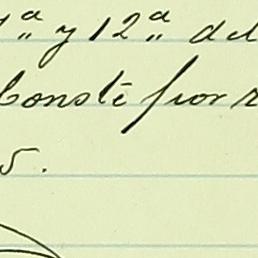 1ª y 12ª del
Consté por
5.